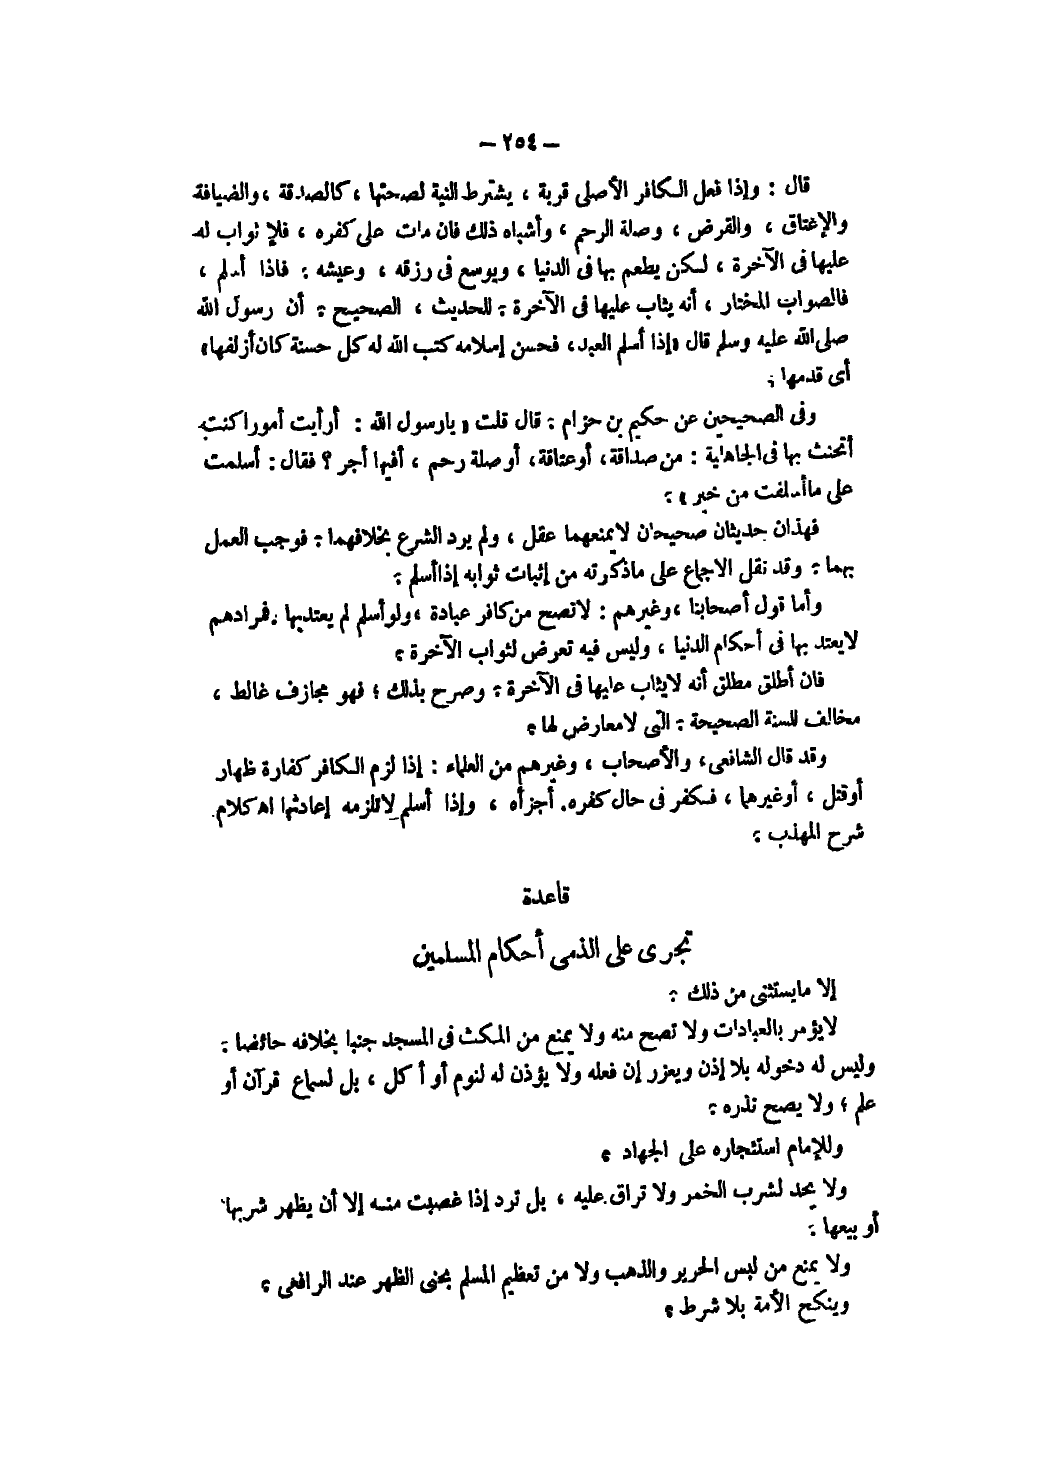 — ٢٥٤ —
قال : وإذا فعل الكافر الأصلى قربة ، يشترط النية لصحتها ، كالصدقة ، والضيافة
والإعتاق ، والقرض ، وصلة الرحم ، وأشباه ذلك فان مات على كفره ، فلا ثواب له
عليها فى الآخرة ، لكن يطعم بها فى الدنيا ، ويوسع فى رزقه ، وعيشه . فاذا أسلم ،
فالصواب المختار ، أنه يثاب عليها فى الآخرة . للحديث ، الصحيح . أن رسول الله
صلى الله عليه وسلم قال «إذا أسلم العبد، فحسن إسلامه كتب الله له كل حسنة كان أزلفها»
أى قدمها .
وفى الصحيحين عن حكيم بن حزام . قال قلت « يارسول الله : أرأيت أمورا كنت
أتحنث بها فى الجاهلية : من صداقة، أوعتاقة، أوصلة رحم ، أفيها أجر ؟ فقال : أسلمت
على ماأسلفت من خير » .
فهذان حديثان صحيحان لايمنعهما عقل ، ولم يرد الشرع بخلافهما . فوجب العمل
بهما . وقد نقل الاجماع على ماذكرته من إثبات ثوابه إذاأسلم .
وأما قول أصحابنا ،وغيرهم : لاتصح من كافر عبادة ،ولوأسلم لم يعتدبها .فمرادهم
لايعتد بها فى أحكام الدنيا ، وليس فيه تعرض لثواب الآخرة .
فان أطلق مطلق أنه لايثاب عليها فى الآخرة . وصرح بذلك ؛ فهو مجازف غالط ،
مخالف للسنة الصحيحة . التى لامعارض لها .
وقد قال الشافعى، والأصحاب ، وغيرهم من العلماء : إذا لزم الكافر كفارة ظهار
أوقتل ، أوغيرهما ، فكفر فى حال كفره. أجزأه ، وإذا أسلم لاتلزمه إعادتها اه كلام
شرح المهذب .
قاعدة
تجرى على الذمى أحكام المسلمين
إلا مايستثنى من ذلك .
لايؤمر بالعبادات ولا تصح منه ولا يمنع من المكث فى المسجد جنبا بخلافه حائضا .
وليس له دخوله بلا إذن ويعزر إن فعله ولا يؤذن له لنوم أو أكل ، بل لسماع قرآن أو
علم ؛ ولا يصح نذره .
وللإمام استئجاره على الجهاد .
ولا يحد لشرب الخمر ولا تراق عليه ، بل ترد إذا غصبت منه إلا أن يظهر شربها
أو بيعها .
ولا يمنع من لبس الحرير والذهب ولا من تعظيم المسلم بحنى الظهر عند الرافعى .
وينكح الأمة بلا شرط .